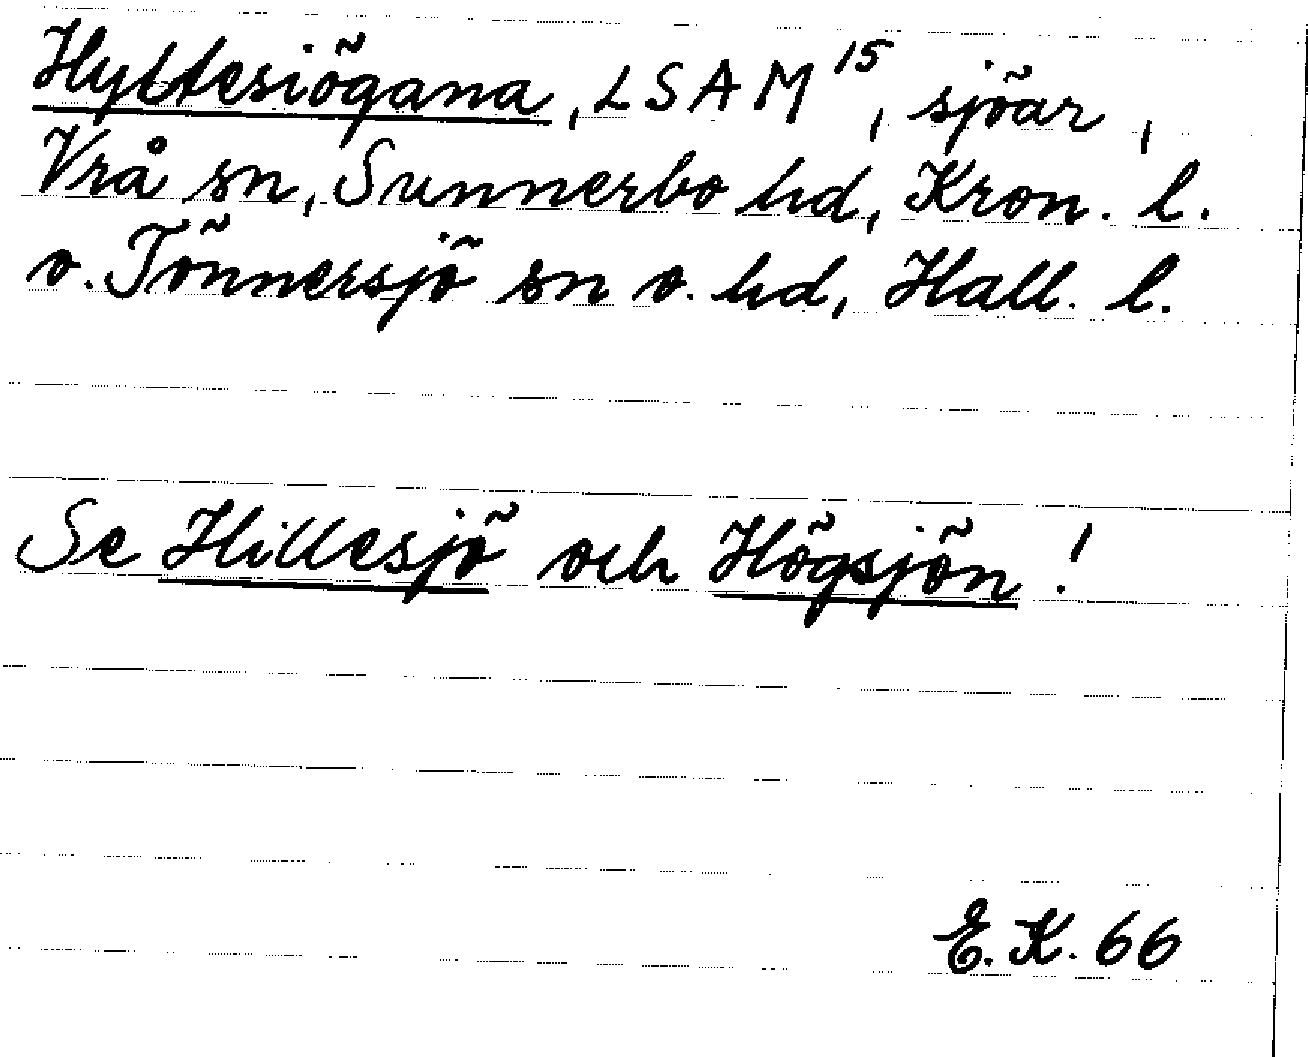 Hyltesiögana, LSAM¹⁵, sjöar,
Vrå sn, Sunnerbo hd, Kron. l.
o. Tönnersjö sn o. hd, Hall. l.
Se Hillesjö och Högsjön!
E.K. 66